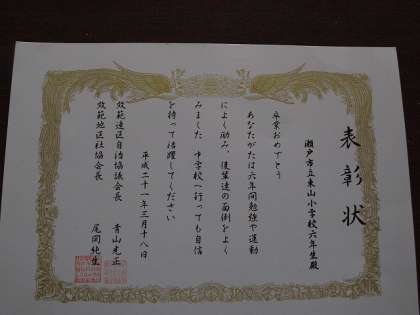 表彰状
瀬戸市立東山小学校六年生殿
卒業おめでとう
あなたがたは六年間勉強や運動
によく励み、後輩達の面倒をよく
みました 中学校へ行っても自信
を持って活躍してください
平成二十一年三月十八日
效範連区自治協議会長 青山光正
效範地区社協会長 尾岡純生